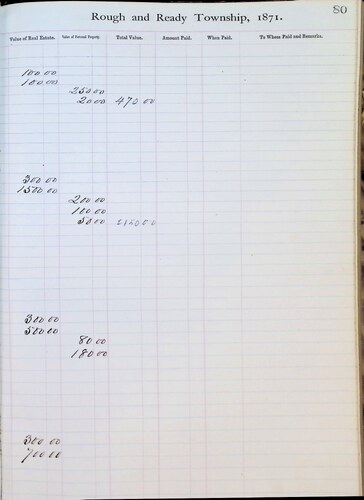 80
Rough and Ready Township, 1871.
Value of Real Estate. Value of Personal Property. Total Value. Amount Paid. When Paid. To Whom Paid and Remarks.
100.00
100.00
250.00
20.00 470.00
300.00
1500.00
200.00
100.00
50.00
300.00
500.00
80.00
180.00
300.00
700.00